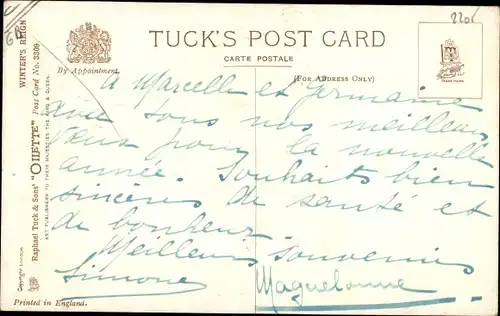 2201
TUCK'S POST CARD
CARTE POSTALE
By Appointment.
(FOR ADDRESS ONLY)
TRADE MARK
WINTER'S REIGN
"OILETTE" Post Card No. 3309.
Raphael Tuck & Sons'
ART PUBLISHERS TO THEIR MAJESTIES THE KING & QUEEN.
Copyright London
Printed in England.
A Marcelle et Germaine
avec tous nos meilleurs
vœux pour la nouvelle
année. Souhaits bien
sincères de santé et
de bonheur
Meilleurs souvenirs
Simone Maguelonne